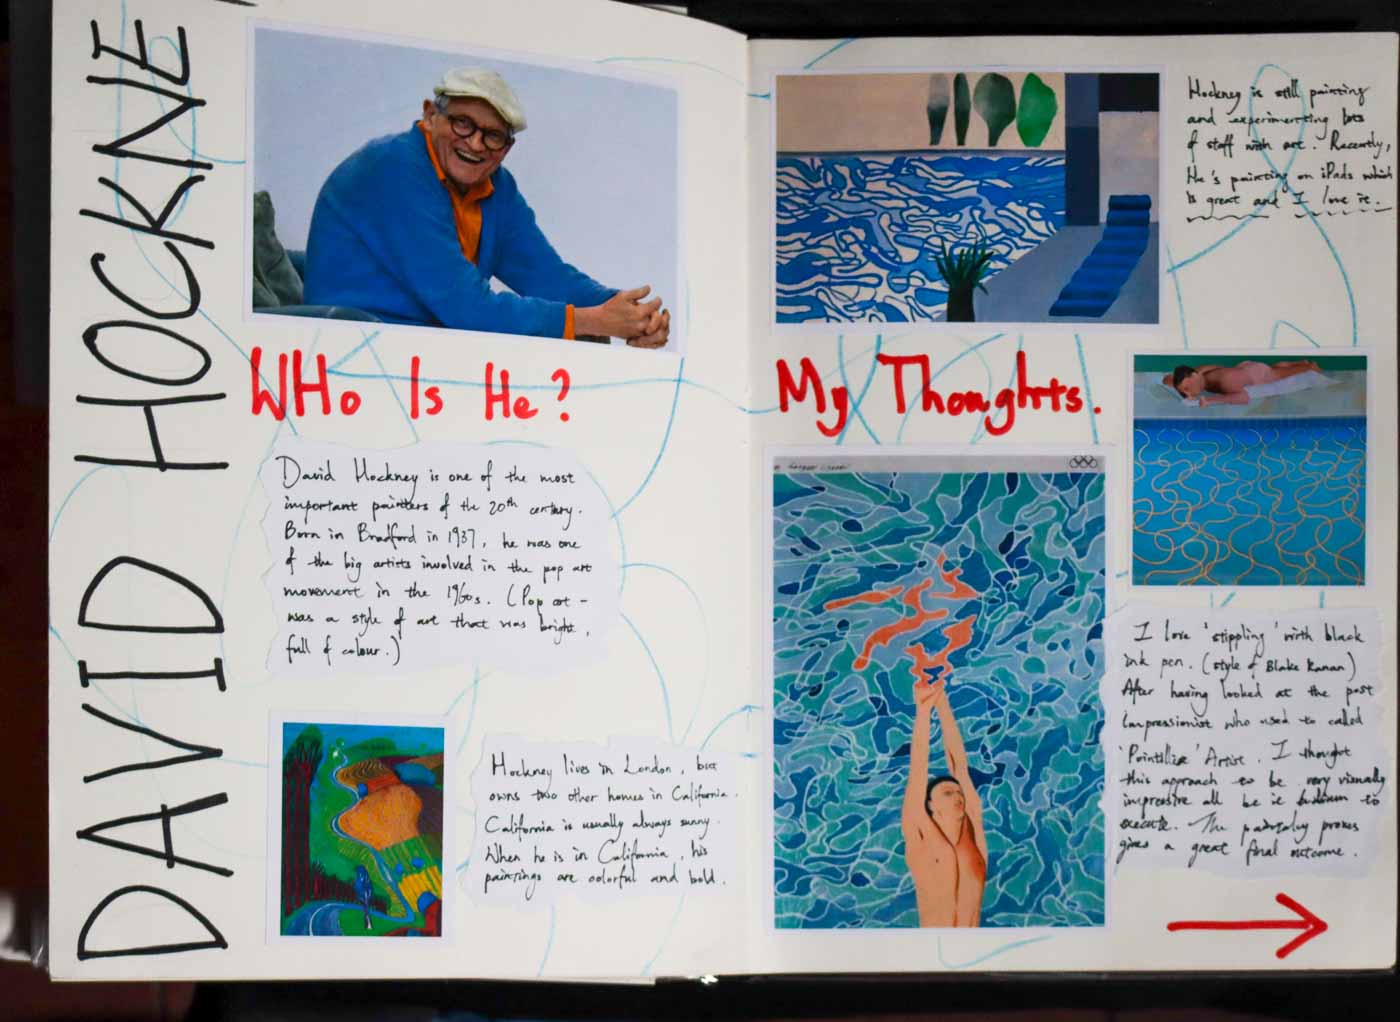 DAVID HOCKNE
WHo Is He?
David Hockney is one of the most
important painters of the 20th century.
Born in Bradford in 1937, he was one
of the big artists involved in the pop art
movement in the 1960s. (Pop art -
was a style of art that was bright,
full of colour.)
Hockney lives in London, but
owns two other homes in California.
California is usually always sunny.
When he is in California, his
paintings are colorful and bold.
Hockney is still painting
and experimenting lots
of stuff with art. Recently,
He's painting on iPads which
is great and I love it.
My Thoughts.
I love 'stippling' with black
ink pen. (style of Blake Kanan)
After having looked at the post
impressionist who used to called
Artist. I thought
this approach to be very visually
impressive all be it to
execute. The process
gives a great final outcome.